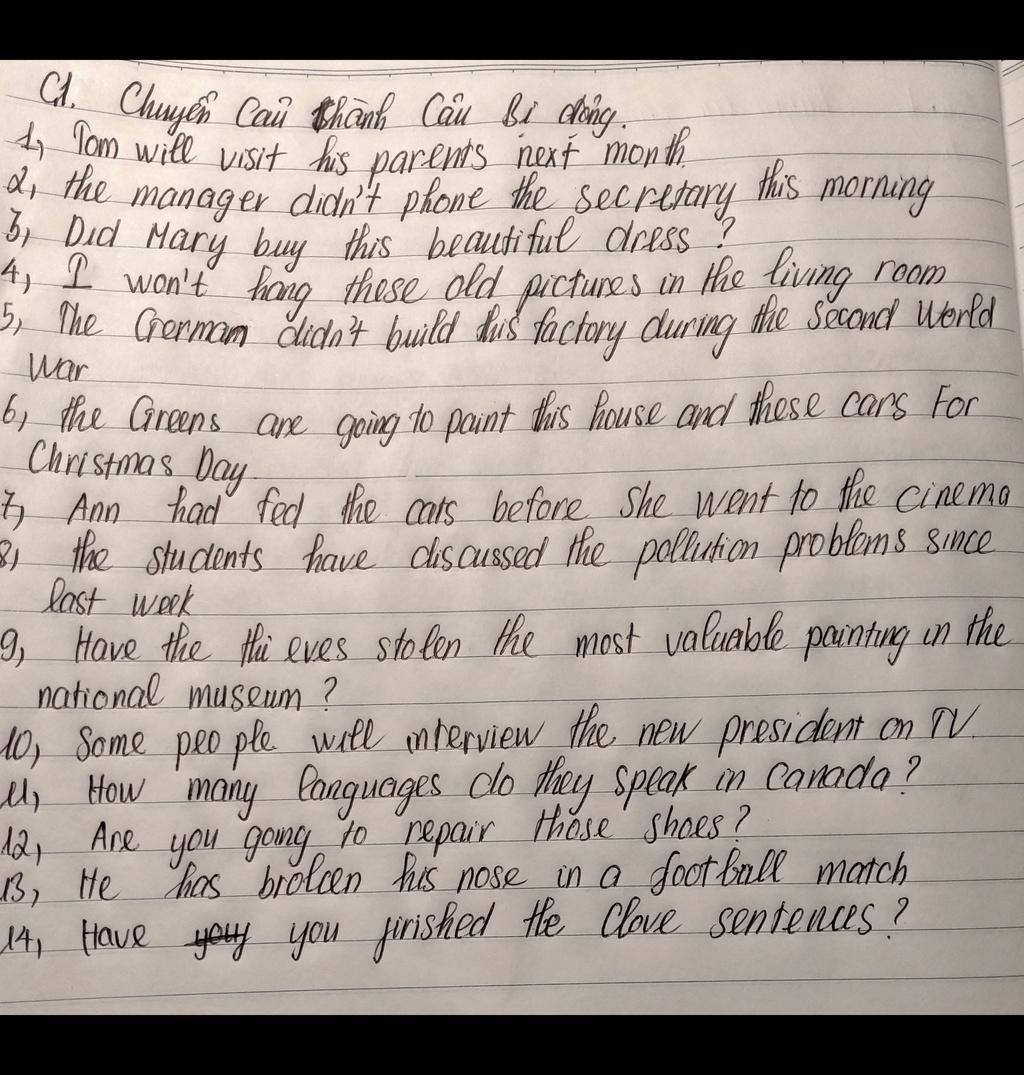 C1. Chuyển Câu thành Câu Bị động.
1, Tom will visit his parents next month.
2, the manager didn't phone the secretary this morning
3, Did Mary buy this beautiful dress ?
4, I won't hang these old pictures in the living room
5, The German didn't build this factory during the Second World
War
6, the Greens are going to paint this house and these cars For
Christmas Day.
7, Ann had fed the cats before She went to the cinema
8, the students have discussed the pollution problems since
last week
9, Have the thieves stolen the most valuable painting in the
national museum ?
10, Some people will interview the new president on TV.
11, How many languages do they speak in Canada ?
12, Are you going to repair those shoes ?
13, He has broken his nose in a football match
14, Have you finished the Clove sentences ?